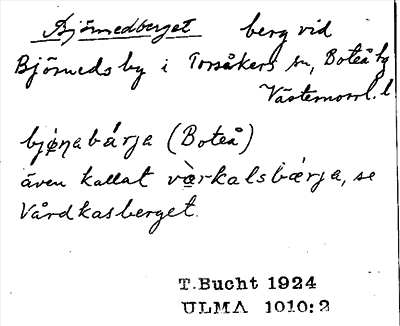 Björnedberget berg vid
Björneds by i Torsåkers sn, Boteå tg
Västernorrl. l.
bjønabárja (Boteå)
även kallat vàrkalsbærja, se
Vårdkasberget.
T.Bucht 1924
ULMA 1010:2